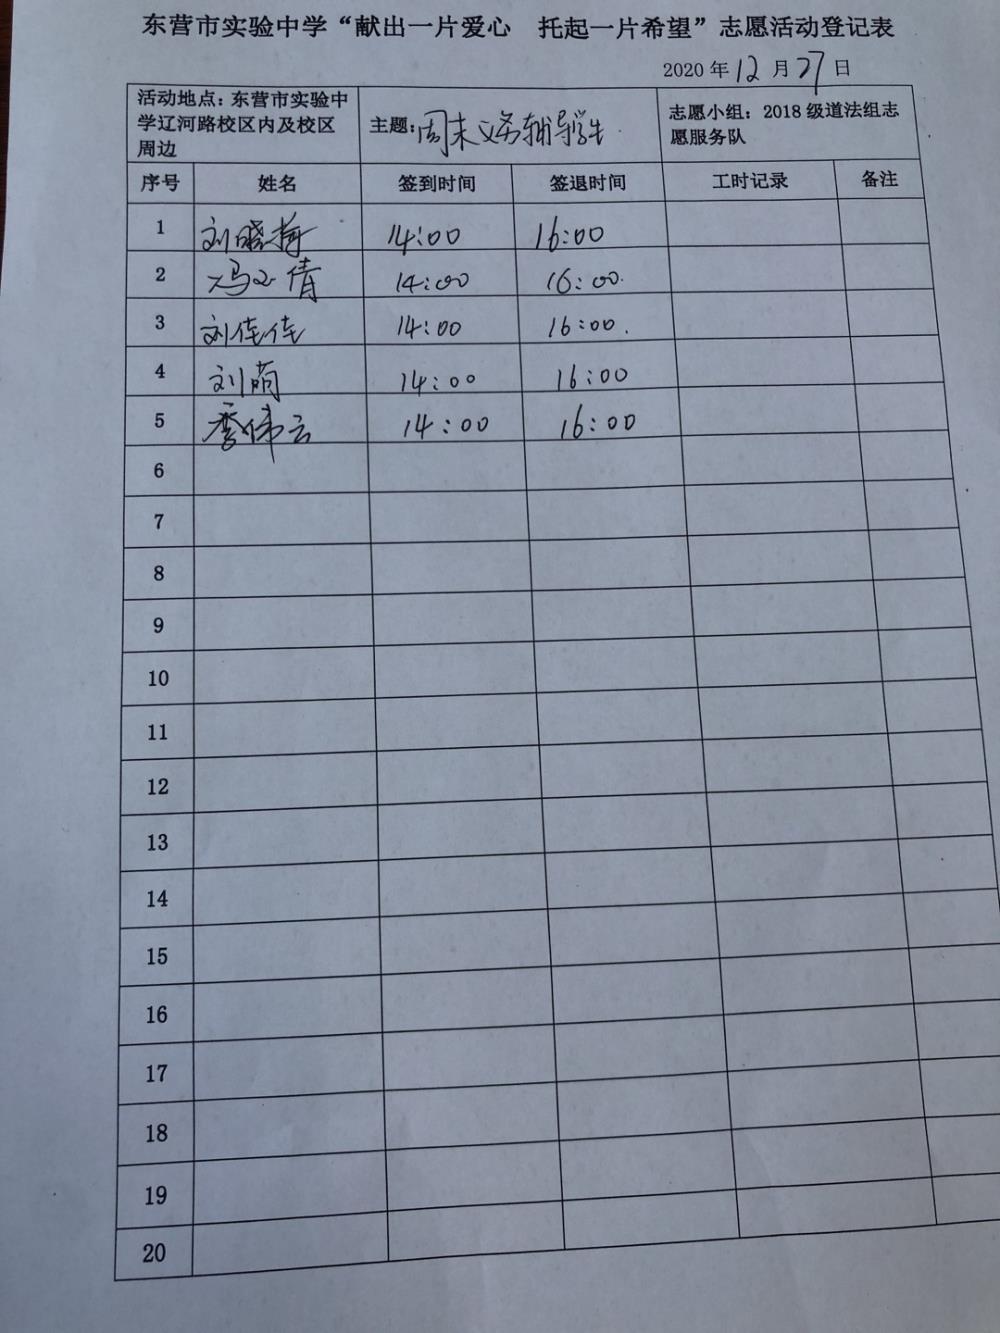 东营市实验中学“献出一片爱心 托起一片希望”志愿活动登记表
2020 年 12 月 27 日
活动地点：东营市实验中
学辽河路校区内及校区
周边
主题：周末义务辅导学生
志愿小组：2018 级道法组志
愿服务队
序号 姓名 签到时间 签退时间 工时记录 备注
1 刘晓梅 14:00 16:00
2 冯文倩 14:00 16:00.
3 刘佳佳 14:00 16:00.
4 刘萌 14:00 16:00
5 季伟云 14:00 16:00
6
7
8
9
10
11
12
13
14
15
16
17
18
19
20